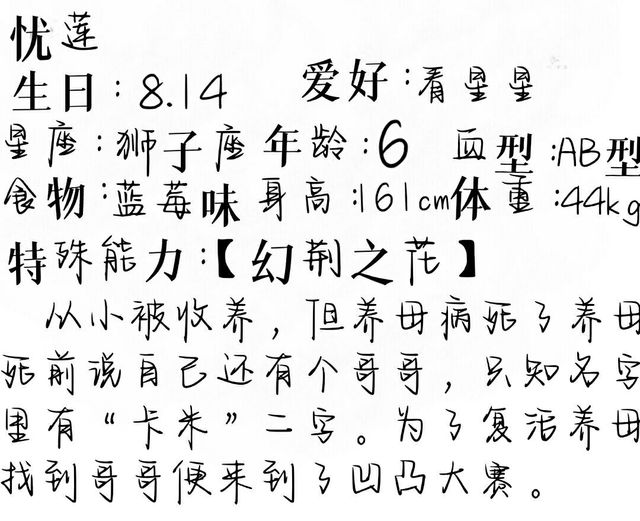 忧莲
生日:8.14 爱好:看星星
星座:狮子座 年龄:6 血型:AB型
食物:蓝莓味 身高:161cm体重:44kg
特殊能力:【幻荆之花】
从小被收养,但养母病死了养母
死前说自己还有个哥哥,只知名字
里有“卡米”二字。为了复活养母
找到哥哥便来到了凹凸大赛。